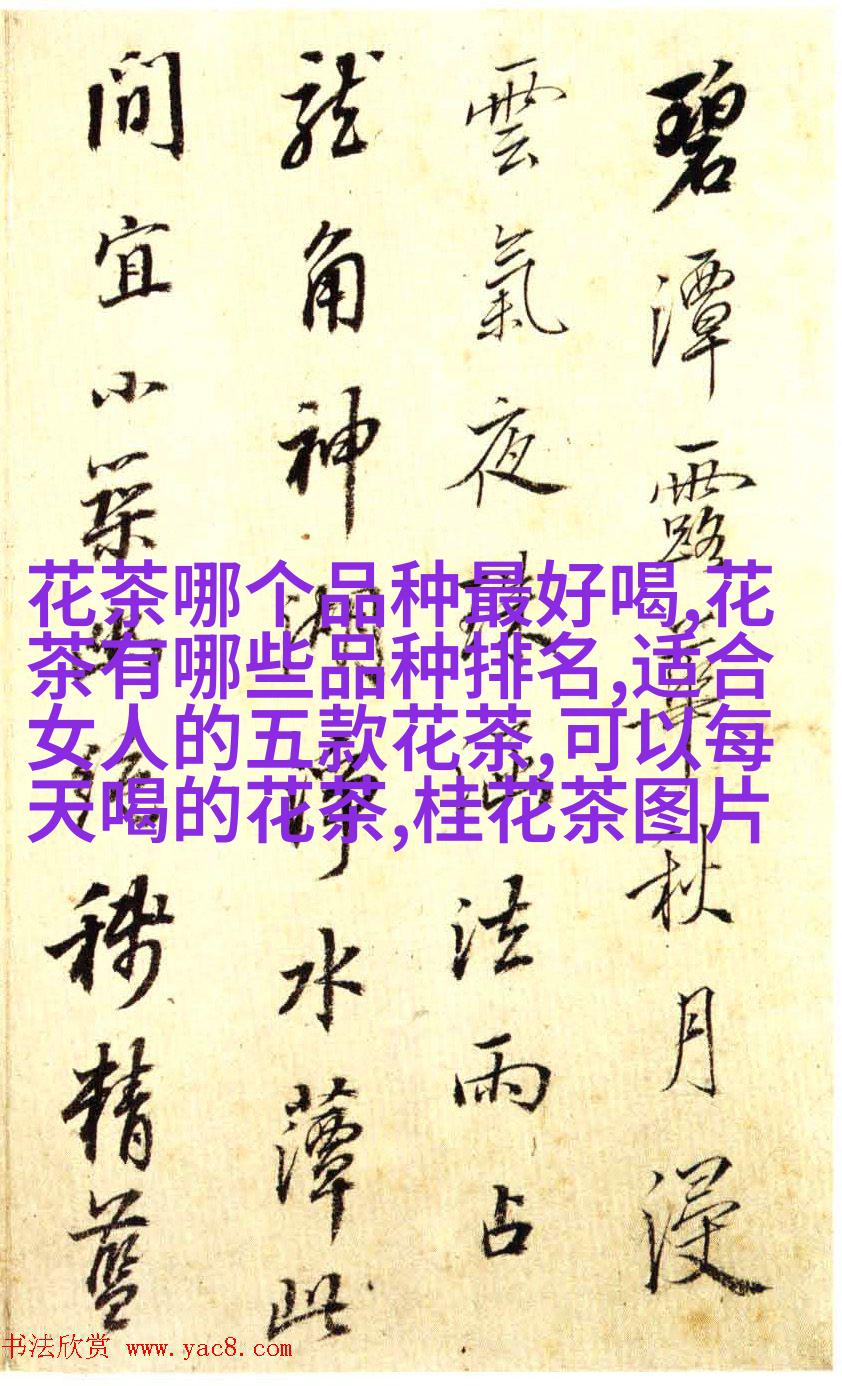 碧潭露華秋月浸
雲氣夜法雨占
龍角神湖水藫此
間宜小築精藍
花茶哪个品种最好喝,花
茶有哪些品种排名,适合
女人的五款花茶,可以每
天喝的花茶,桂花茶图片
书法欣赏 www.yac8.com